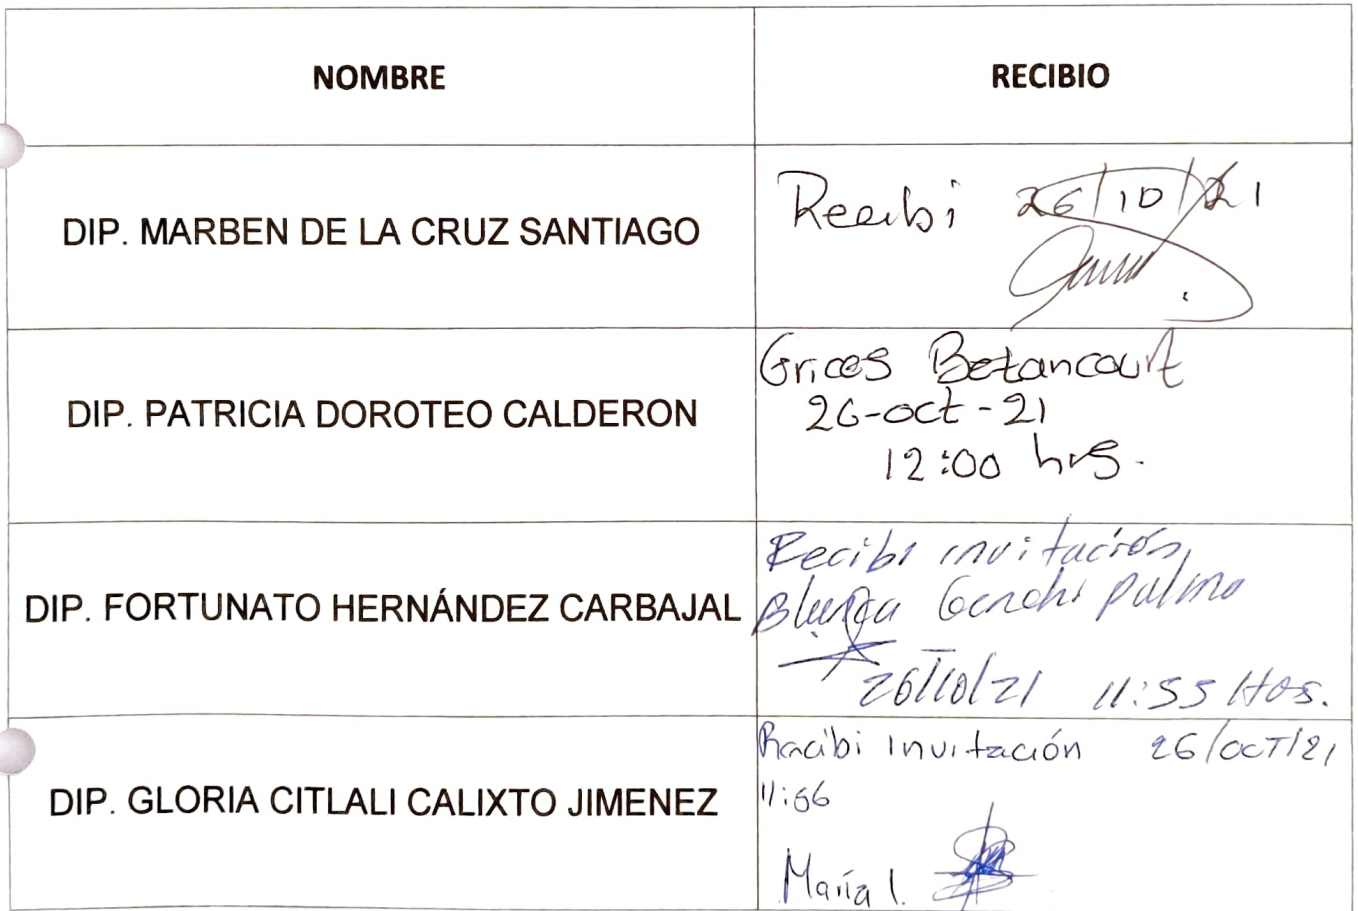 NOMBRE
RECIBIO
DIP. MARBEN DE LA CRUZ SANTIAGO
Recibi 26/10/21
DIP. PATRICIA DOROTEO CALDERON
Grices Betancourt
26-oct-21
12:00 hrs.
DIP. FORTUNATO HERNÁNDEZ CARBAJAL
Recibi invitación
Blanca Ganchi Palma
26/10/21 11:55 Hrs.
DIP. GLORIA CITLALI CALIXTO JIMENEZ
Recibi Invitación 26/OCT/21
11:56
María I.